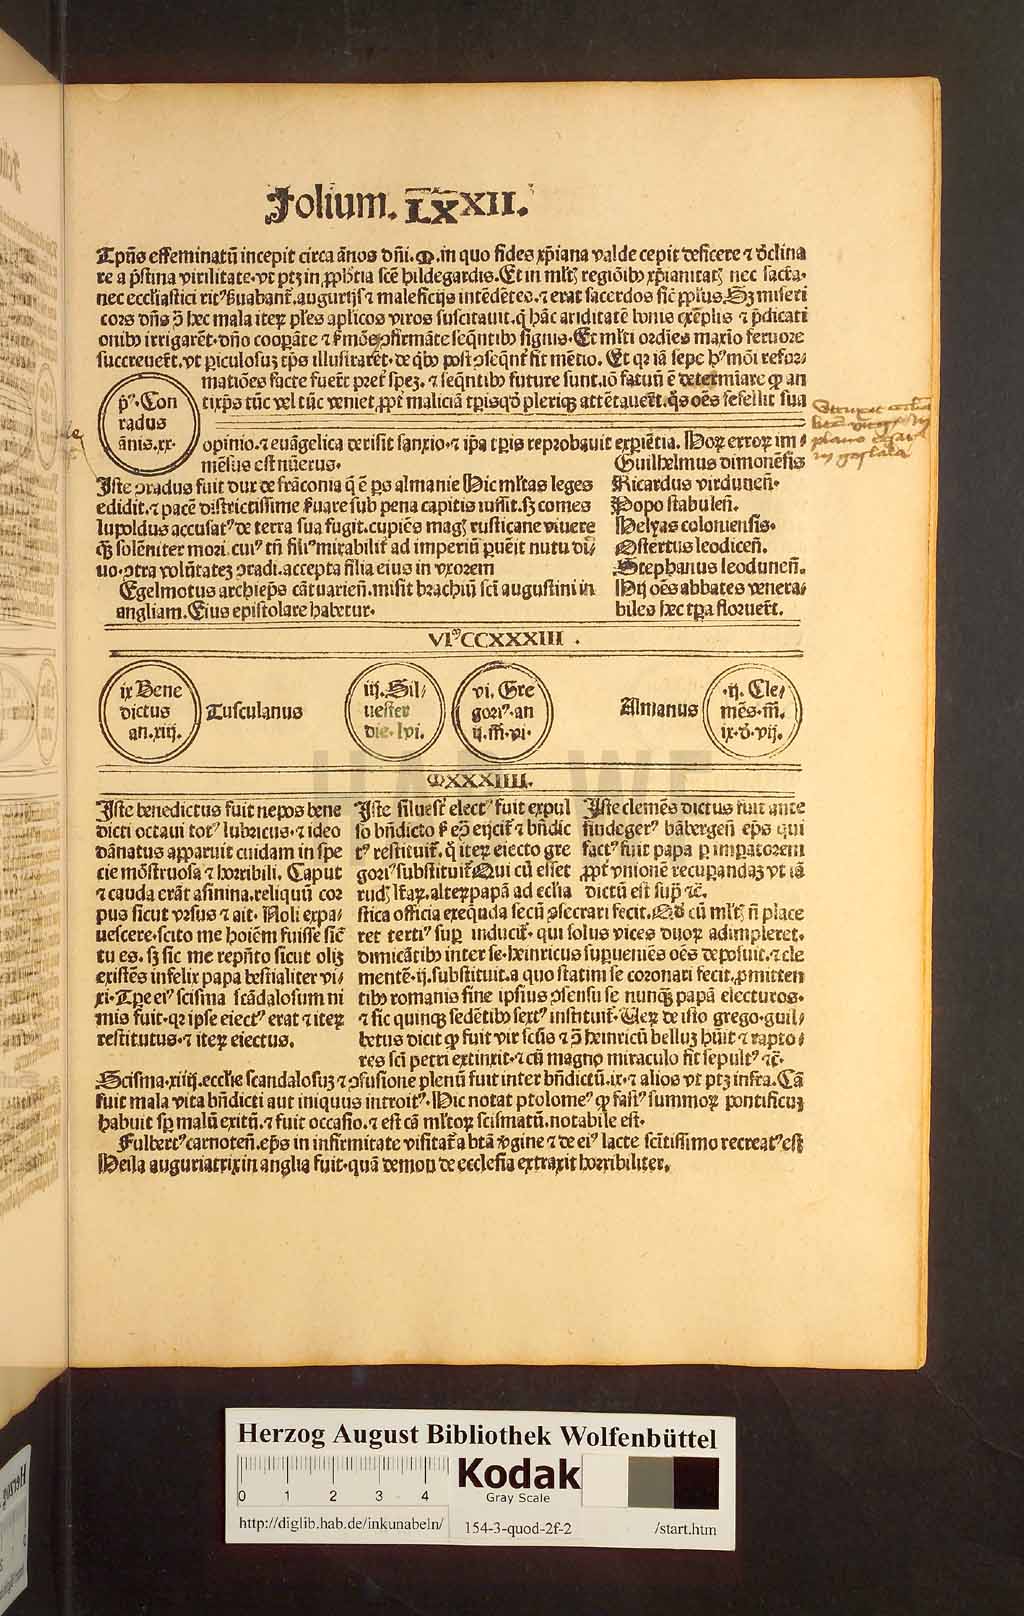 Folium. LXXII.
Tpūs effeminatū incepit circa ānos dn̄i. M. in quo fides xp̄iana valde cepit deficere ⁊ d̓clina
re a p̄stina virilitate· vt ptꝫ in ꝓph̄tia scē hildegardis. Et in ml̓tꝭ regiōibꝰ xp̄ianitatꝭ nec sacͣta·
nec eccl̓iastici ritꝰ ẜuabant᷑, augurijs ⁊ maleficijs intēdētes. ⁊ erat sacerdos sic̄ ppl̓us. Sꝫ miseri
cors dn̄s ꝯ̄ hec mala iteꝝ pl̓es apl̓icos viros suscitauit. q̇ hāc ariditatē bonis exēplis ⁊ p̄dicati
onibꝰ irrigarēt· dn̄o cooꝑāte ⁊ ẜmōes ꝯfirmāte seq̄ntibꝰ signis. Et ml̓ti ordīes maxīo feruore
succreuer̄t. vt ꝑiculosuꝫ tp̄s illustrarēt· de q̇bꝰ post ꝯseq̄nt᷑ fit mētio. Et qꝛ iā sepe hꝰmōi refor-
matiōes facte fuer̄t pret᷑ speꝫ. ⁊ seq̄ntibꝰ future sunt. iō fatuū ē determīare qꝙ an
tixp̄s tūc vel tūc veniet. ꝓpt᷑ maliciā tꝑis qd̓ pleriqꝫ attētauer̄t. q̄s oēs fefellit sua
opinio. ⁊ euāgelica derisit sanxio. ⁊ ip̄a tꝑis reprobauit expiētia. Hoꝝ erroꝝ im-
mēsus est nūerus.
pͥꝰ. Con
radus
ānis. xx.
Iste ꝯradus fuit dux de frāconia q̄ ē ꝑs almanie Hic ml̓tas leges
edidit. ⁊ pacē districtissime ẜuare sub pena capitis iussit. sꝫ comes
lupoldus accusatꝰ de terra sua fugit. cupiēs magꝭ rusticane viuere
qꝫ̄ solēniter mori. cuiꝰ tn̄ filiꝰ mirabilit᷑ ad imperiū ꝑuēit nutu di-
uo· ꝯtra volūtateꝫ ꝯradi. accepta filia eius in vxorem
Egelmotus archiep̄s cātuarien̄. misit brachiū scī augustini in
angliam. Eius epistolare habetur.
Guilhelmus dimonēsis
Ricardus virdunen̄.
Popo stabulen̄.
Helyas coloniensis.
Ostertus leodicen̄.
Stephanus leodunen̄.
Hij oēs abbates venera-
biles hec tꝑa floruer̄t.
VIᵐCCXXXIII .
ix Bene
dictus
an. xiij.
Tusculanus
iij. Sil-
uester
die. lvi.
vi. Gre
goriꝰ. an
ij. m̄. vi.
Almanus
.ij. Cle-
mēs. m̄.
ix. d̓. vij.
MXXXIIII.
Iste benedictus fuit nepos bene
dicti octaui totꝰ lubricus. ⁊ ideo
dānatus apparuit cuidam in spe
cie mōstruosa ⁊ horribili. Caput
⁊ cauda erāt asinina. reliquū cor
pus sicut vrsus ⁊ ait. Noli expa-
uescere. scito me hoīem fuisse sic̄
tu es. sꝫ sic me repn̄to sicut oliꝫ
existēs infelix papa bestialiter vi-
xi. Tꝑe eiꝰ scisma scādalosum ni
mis fuit. qꝛ ipse eiectꝰ erat ⁊ iteꝝ
restitutus. ⁊ iteꝝ eiectus.
Iste siluest᷑ electꝰ fuit expul
so bn̄dicto ẜ eo᷑ eijcit᷑ ⁊ bn̄dic
tꝰ restituit᷑. q̇ iteꝝ eiecto gre
goriꝰ substituit᷑ Qui cū esset
rudꝭ l᷑aꝝ. alteꝝ papā ad eccl̓ia
stica officia exequēda secū ꝯsecrari fecit. Qd̓ cū ml̓tꝭ n̄ place
ret tertiꝰ suꝑ inducit᷑. qui solus vices duoꝝ adimpleret.
dimicātibꝰ inter se. heinricus suꝑueniēs oēs deposuit. ⁊ cle
mentē. ij. substituit. a quo statim se coronari fecit. ꝓmitten
tibꝰ romanis sine ipsius ꝯsensu se nunqꝫ̄ papā electuros.
⁊ sic quinqꝫ sedētibꝰ sextꝰ instituit᷑. Ueꝝ de isto grego. guil-
betus dicit qꝙ fuit vir sct̄is ⁊ ꝯ̄ heinricū belluꝫ hūit ⁊ rapto-
res scī petri extinxit. ⁊ cū magno miraculo fit sepultꝰ ⁊c̄.
Iste clemēs dictus fuit ante
sindegerꝰ bābergen̄ ep̄s qui
factꝰ fuit papa ꝑ imꝑatorem
ꝓpt᷑ vnionē recuꝑandaꝫ vt iā
dictū est sup̄ ⁊c̄.
Scisma. xiiij. eccl̓ie scandalosuꝫ ⁊ ꝯfusione plenū fuit inter bn̄dictū. ix. ⁊ alios vt ptꝫ infra. Cā
fuit mala vita bn̄dicti aut iniquus introitꝰ. Hic notat ptolomeꝰ qꝙ fastꝰ summoꝝ pontificuꝫ
habuit sꝑ malū exitū. ⁊ fuit occasio. ⁊ est cā ml̓toꝝ scismatū. notabile est.
Fulbertꝰ carnoten̄. ep̄s in infirmitate visitat᷑ a btā v̓gine ⁊ de eiꝰ lacte scn̄tissimo recreatꝰ est
Heila auguriatrix in anglia fuit. quā demon de ecclesia extraxit horribiliter.
HAB WF
Herzog August Bibliothek Wolfenbüttel
0 1 2 3 4
Kodak
Gray Scale
http://diglib.hab.de/inkunabeln/
154-3-quod-2f-2
/start.htm